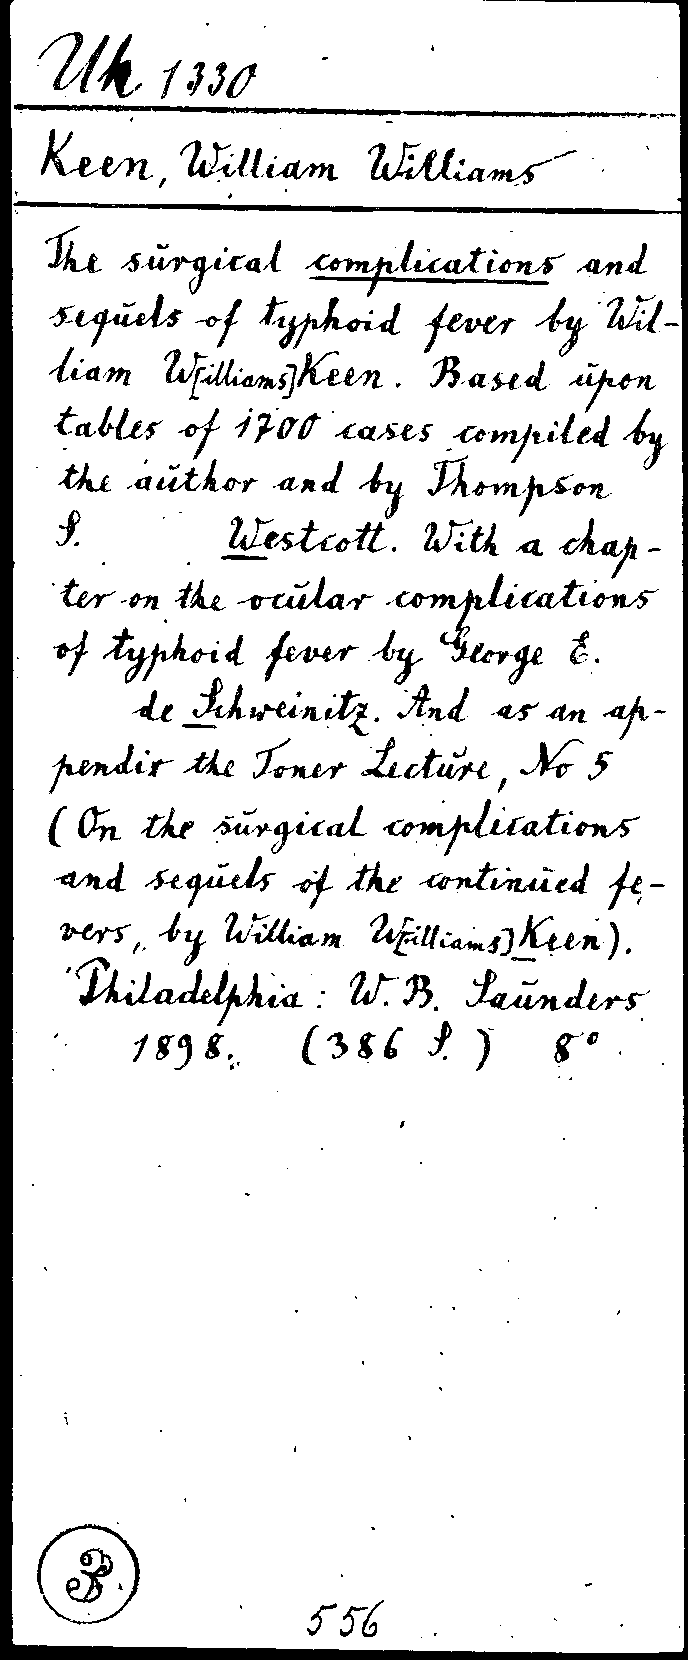 Uk 1330
Keen, William Williams
The surgical complications and
sequels of typhoid fever by Wil-
liam W[illiams] Keen. Based upon
tables of 1700 cases compiled by
the author and by Thompson
S. Westcott. With a chap-
ter on the ocular complications
of typhoid fever by George E.
de Schweinitz. And as an ap-
pendix the Toner Lecture, No 5
(On the surgical complications
and sequels of the continued fe-
vers, by William W[illiams] Keen).
Philadelphia: W. B. Saunders
1898. (386 S.) 8°
556